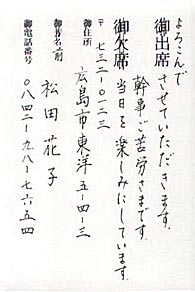 よろこんで
御出席させていただきます。
幹事ご苦労さまです。
当日を楽しみにしています。
御欠席
〒七三二-〇一二三
御住所 広島市東洋五-四-三
御芳名 松田花子
御電話番号 〇八四二-九八-七六五四